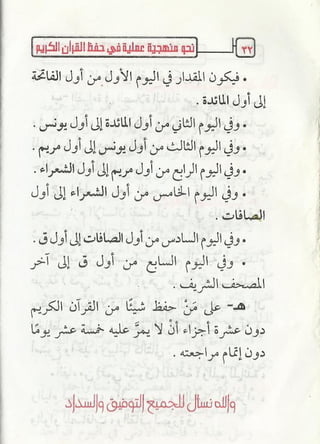 ٣٢ نحو منهجية عملية في حفظ القرآن الكريم
• فيكون المقدار في اليوم الأول من أول الفاتحة
إلى أول المائدة .
• وفي اليوم الثاني من أول المائدة إلى أول يونس .
• وفي اليوم الثالث من أول يونس إلى أول مريم .
• وفي اليوم الرابع من أول مريم إلى أول الشعراء .
• وفي اليوم الخامس من أول الشعراء إلى أول
الصافات .
• وفي اليوم السادس من أول الصافات إلى أول ق .
• وفي اليوم السابع من أول ق إلى آخر
المصحف الشريف .
هـ- على مَنْ حفظ شيئًا من القرآن الكريم
دون عشرة أجزاء أنْ لا يمرَّ عليه خمسة عشر يومًا
دون إتمام مراجعته .
والله نسأل للجميع التوفيق والسداد